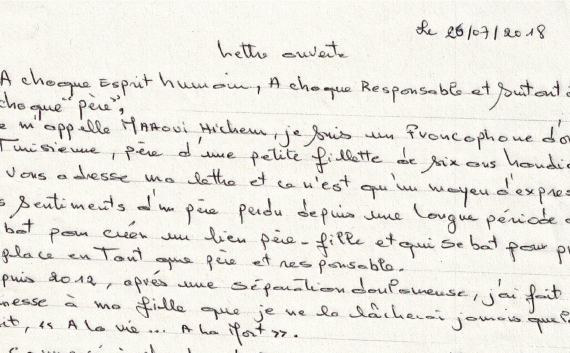 Le 26/07/2018
Lettre ouverte
A chaque Esprit humain, A chaque Responsable et Surtout à
chaque "père",
e m'appelle Hichem, je suis un Francophone d'o
Tunisienne, père d'une petite fillette de six ans handic
Vous adresse ma lettre et ce n'est qu'un moyen d'expres
s sentiments d'un père perdu depuis une longue période
bat pour créer un lien père-fille et qui se bat pour p
place en Tant que père et responsable.
puis 2012, après une séparation douloureuse, j'ai fait
messe à ma fille que je ne la lâcherai jamais quel
it, « A la vie ... A la Mort ».